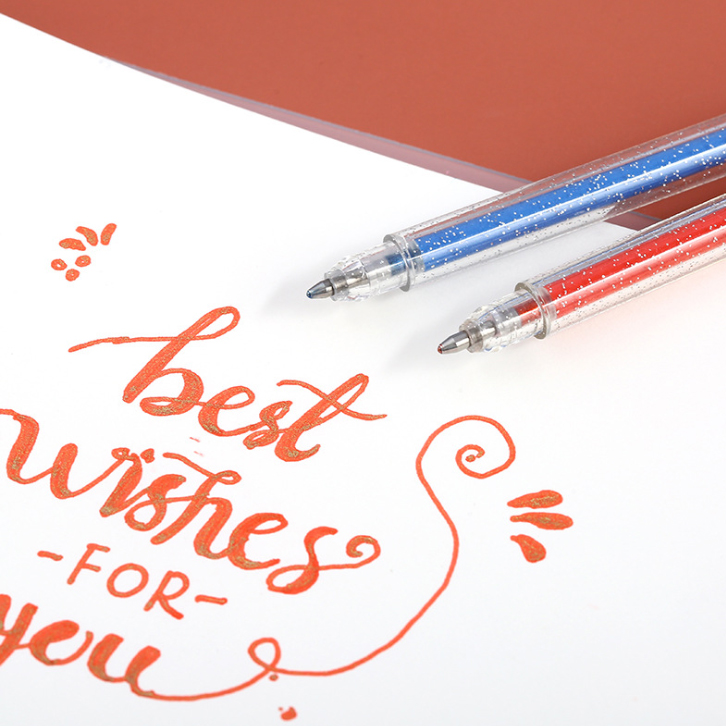 best
wishes
-FOR-
you